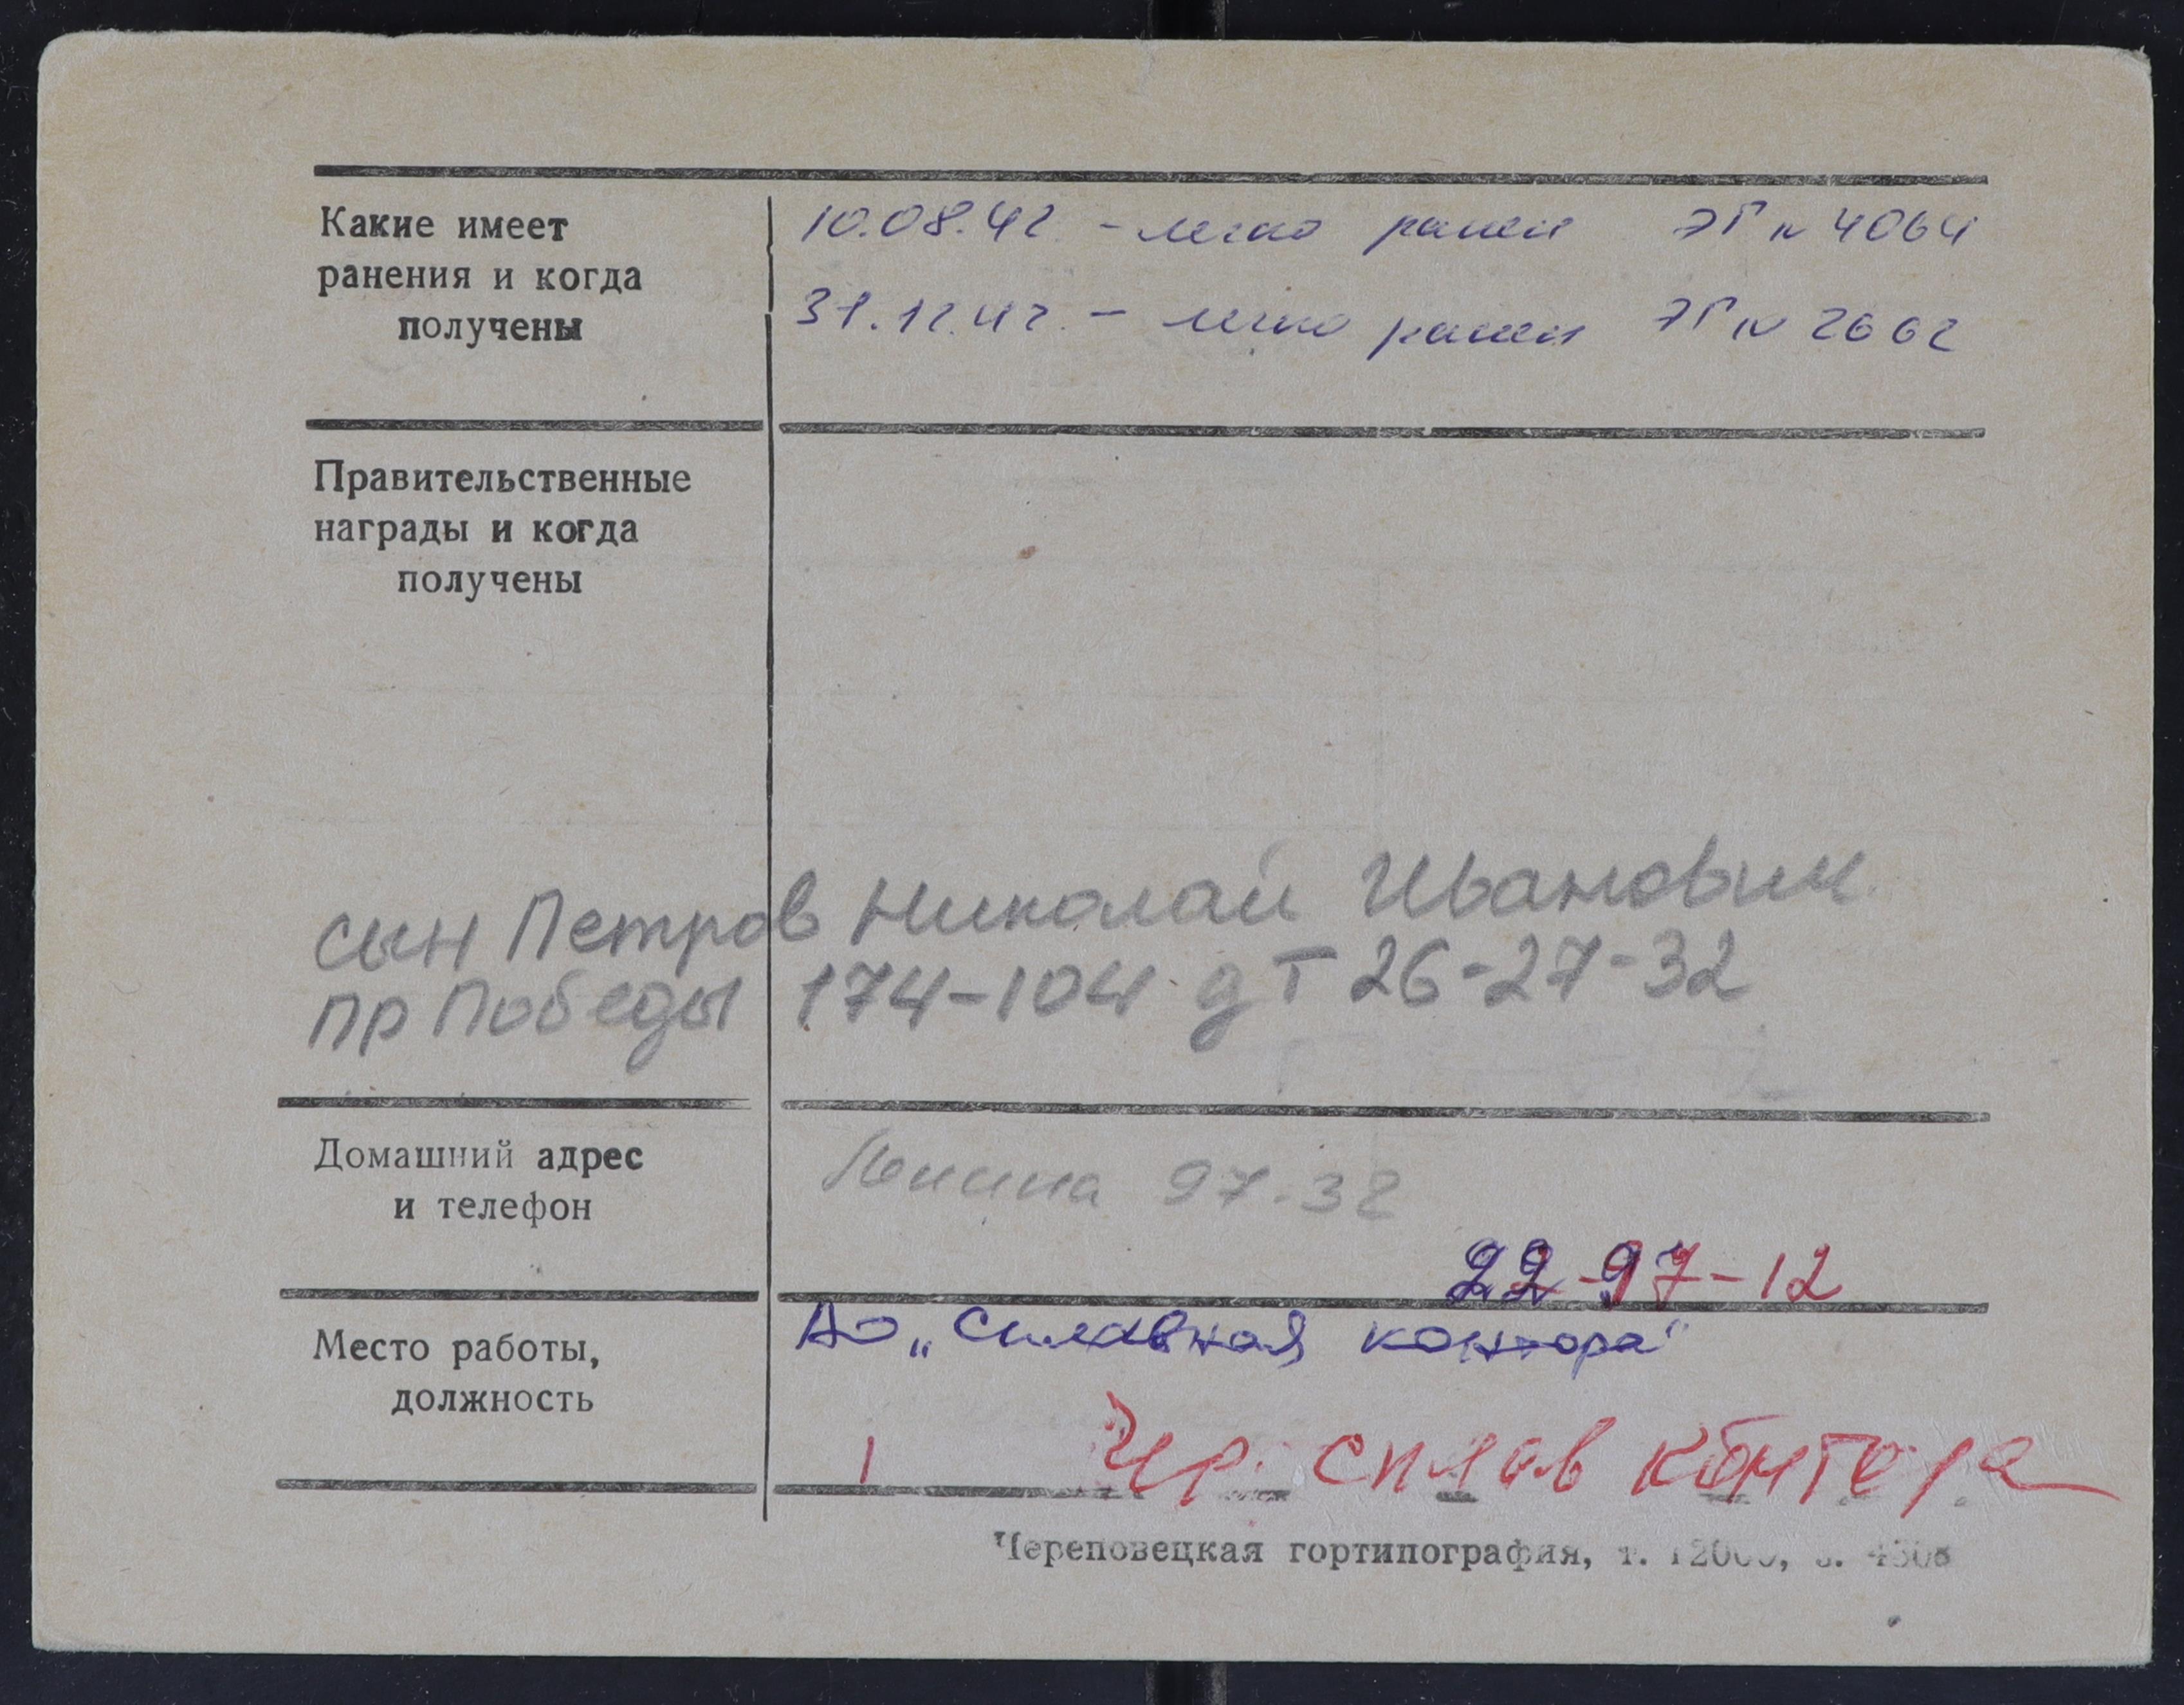 Какие имеет
ранения и когда
получены
10.08.42 - легко ранен ЭГ N 4064
31.12.42. - легко ранен ЭГ N 2662
Правительственные
награды и когда
получены
сын Петров Николай Иванович
пр Победы 174-104 д Т 26-27-32
Домашний адрес
и телефон
Ленина 97-32
22-97-12
Место работы,
должность
АО „Сплавная контора"
1 Чер. сплав контора
Череповецкая гортипография, т. 12000, з. 4308